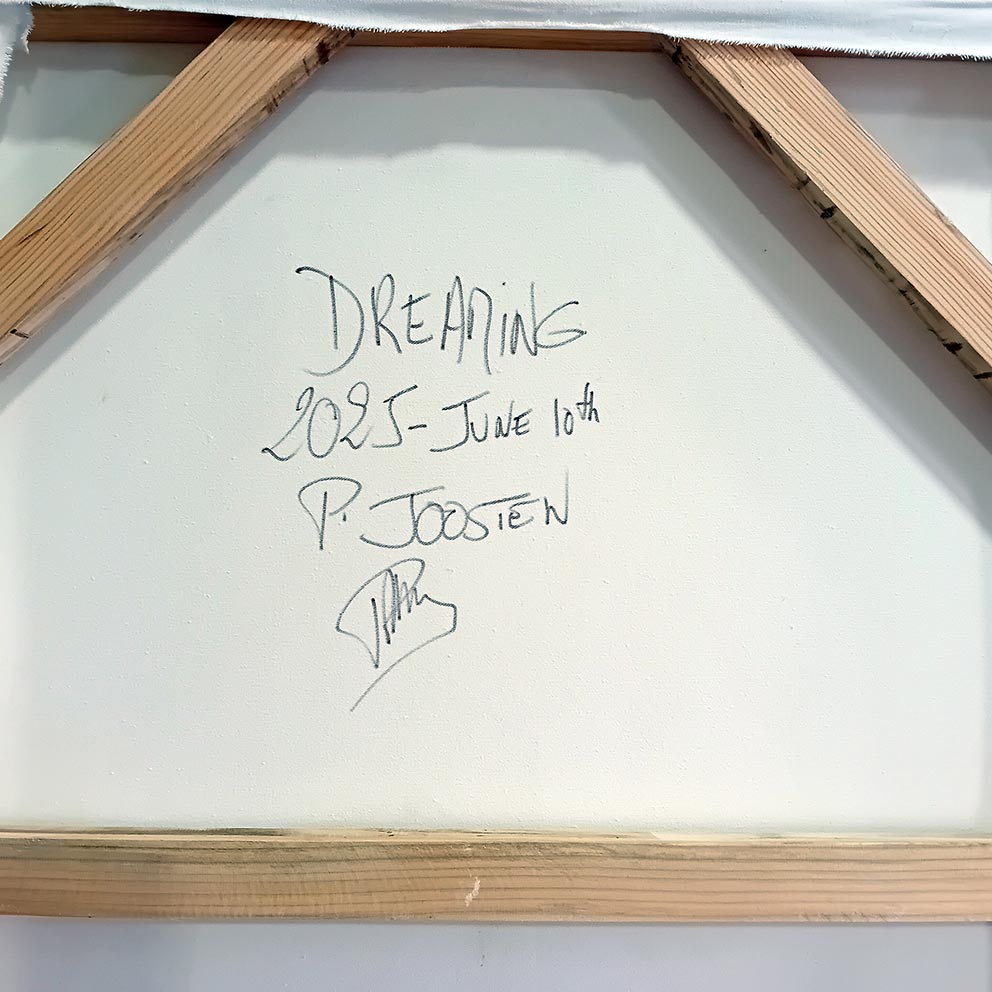 DREAMING
2025 - JUNE 10th
P. JOOSTEN